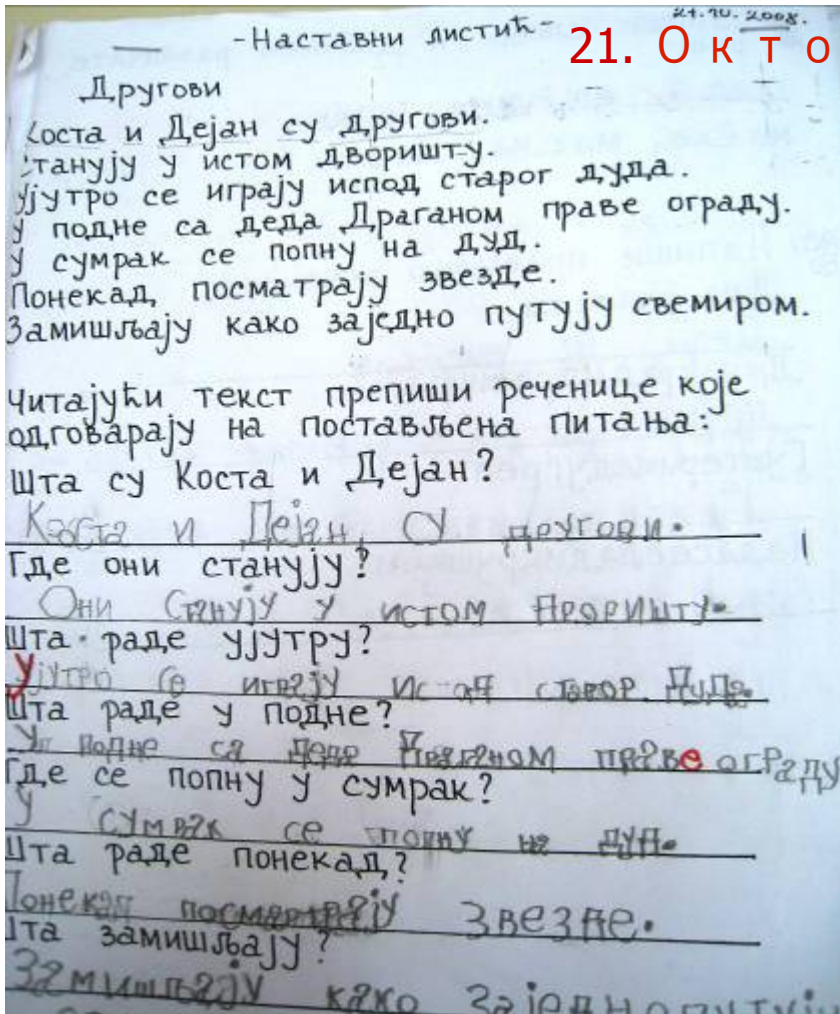 21.10.2008.
-Наставни листић-
21. О к т о
Другови
Коста и Дејан су другови.
Станују у истом дворишту.
Ујутро се играју испод старог дуда.
У подне са деда Драганом праве ограду.
У сумрак се попну на дуд.
Понекад посматрају звезде.
Замишљају како заједно путују свемиром.
Читајући текст препиши реченице које
одговарају на постављена питања:
Шта су Коста и Дејан?
Коста и Дејан су другови.
Где они станују?
Они Станују у истом
Шта раде ујутру?
Ујутро се играју
Шта раде у подне?
подне са праве ограду
Где се попну у сумрак?
У сумрак се попну на дуд.
Шта раде понекад?
Понекад посматрају Звезде.
Шта замишљају?
Замишљају како заједно путују